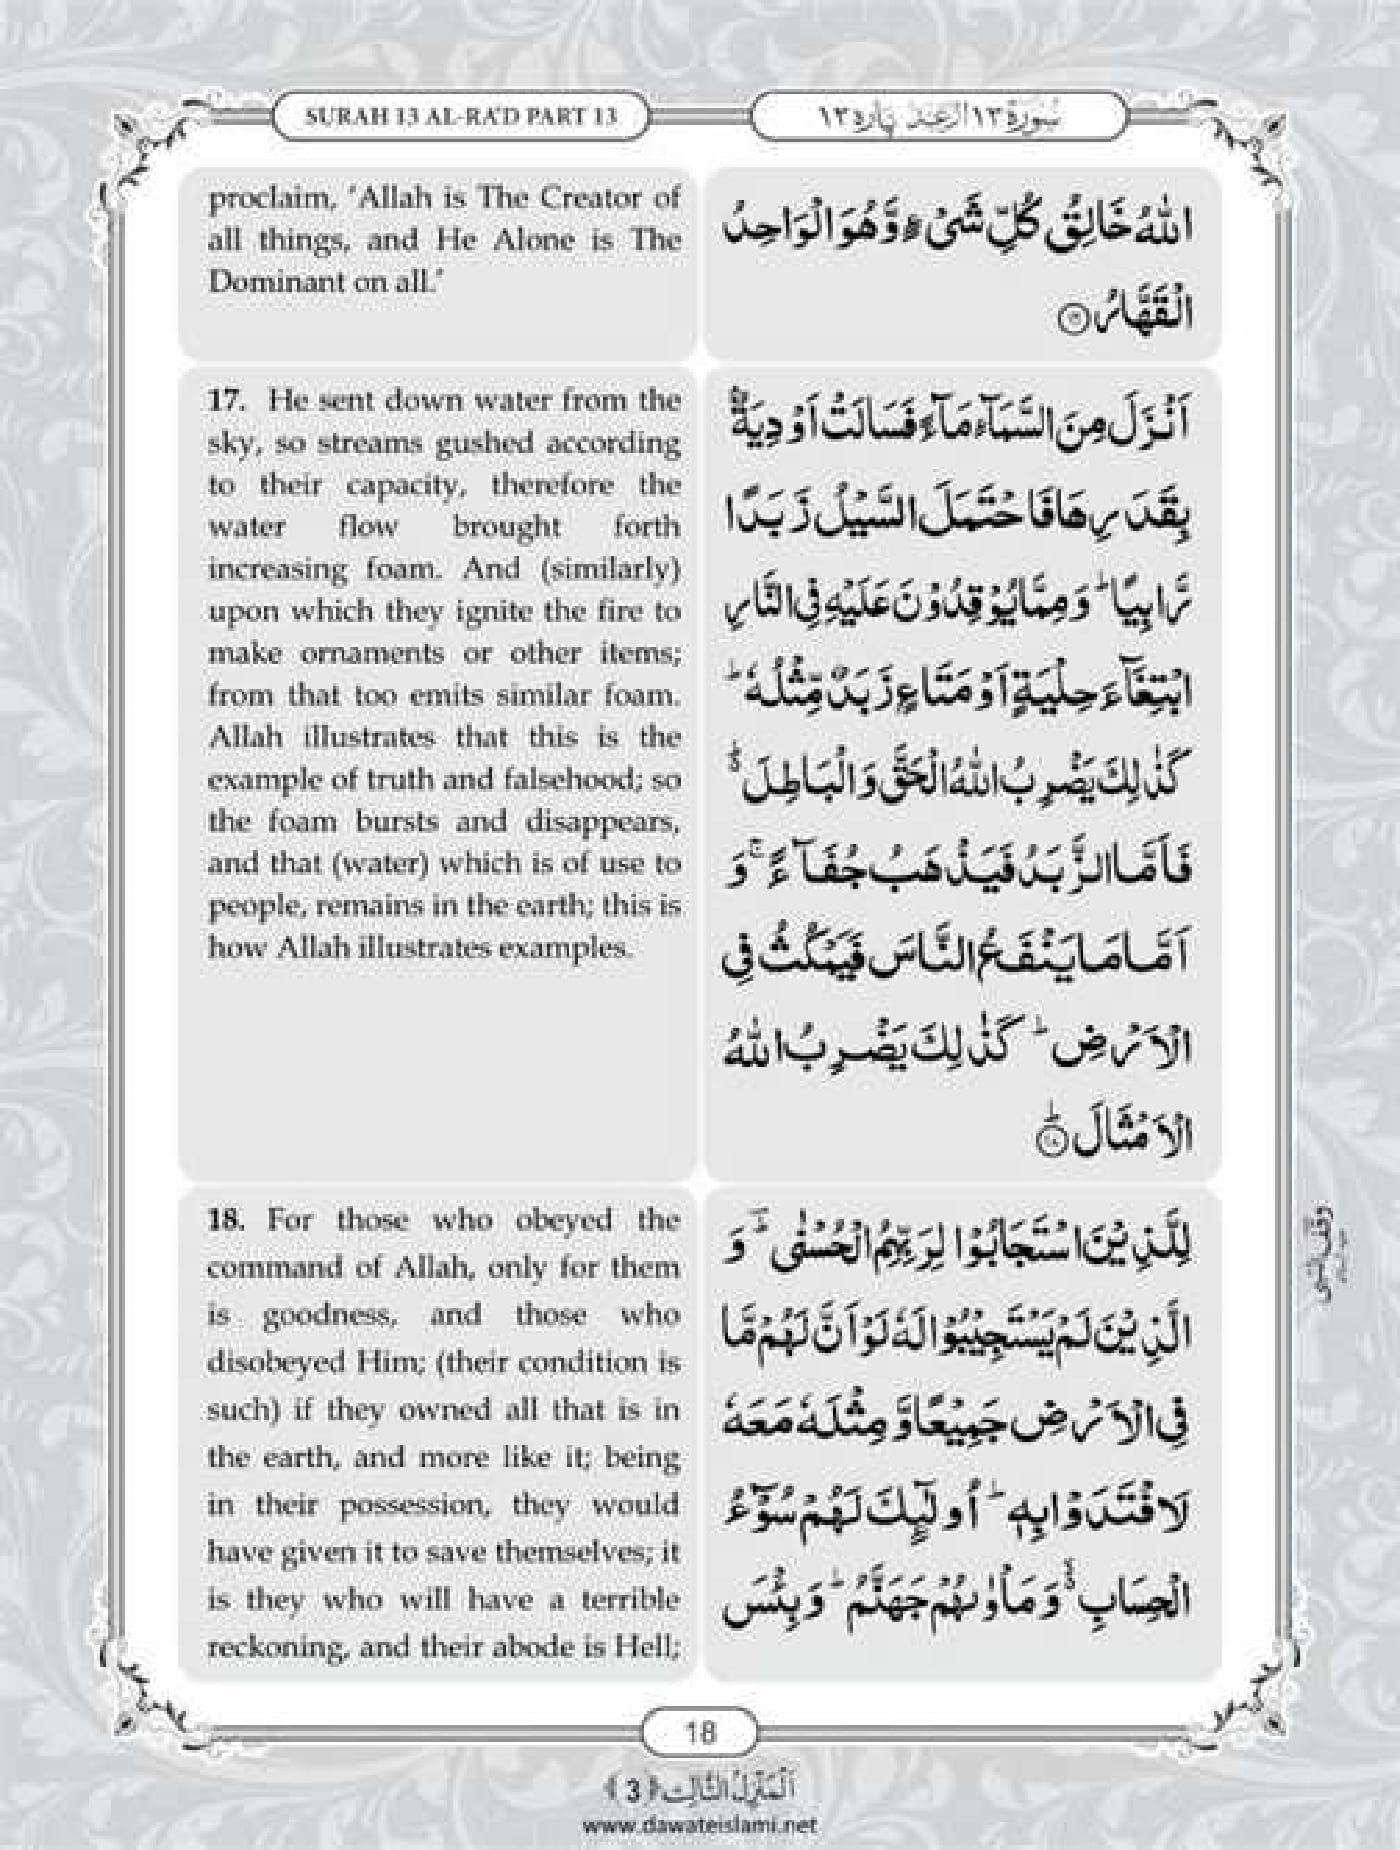 SURAH 13 AL-RA'D PART 13
سُوْرَةُ ١٣ الرَّعْد پَاره ١٣
proclaim, 'Allah is The Creator of
all things, and He Alone is The
Dominant on all.'
اللّٰهُ خَالِقُ كُلِّ شَیْءٍ وَّهُوَ الْوَاحِدُ
الْقَهَّارُ
17. He sent down water from the
sky, so streams gushed according
to their capacity, therefore the
water flow brought forth
increasing foam. And (similarly)
upon which they ignite the fire to
make ornaments or other items;
from that too emits similar foam.
Allah illustrates that this is the
example of truth and falsehood; so
the foam bursts and disappears,
and that (water) which is of use to
people, remains in the earth; this is
how Allah illustrates examples.
اَنْزَلَ مِنَ السَّمَآءِ مَآءً فَسَالَتْ اَوْدِیَةٌۢ
بِقَدَرِهَا فَاحْتَمَلَ السَّیْلُ زَبَدًا
رَّابِیًا ؕ وَمِمَّا یُوْقِدُوْنَ عَلَیْهِ فِی النَّارِ
ابْتِغَآءَ حِلْیَةٍ اَوْ مَتَاعٍ زَبَدٌ مِّثْلُهٗ ؕ
كَذٰلِكَ یَضْرِبُ اللّٰهُ الْحَقَّ وَالْبَاطِلَ ۬ؕ
فَاَمَّا الزَّبَدُ فَیَذْهَبُ جُفَآءً ۚ وَ
اَمَّا مَا یَنْفَعُ النَّاسَ فَیَمْكُثُ فِی
الْاَرْضِ ؕ كَذٰلِكَ یَضْرِبُ اللّٰهُ
الْاَمْثَالَ ؕ
18. For those who obeyed the
command of Allah, only for them
is goodness, and those who
disobeyed Him; (their condition is
such) if they owned all that is in
the earth, and more like it; being
in their possession, they would
have given it to save themselves; it
is they who will have a terrible
reckoning, and their abode is Hell;
لِلَّذِیْنَ اسْتَجَابُوْا لِرَبِّهِمُ الْحُسْنٰی ؕؔ وَ
الَّذِیْنَ لَمْ یَسْتَجِیْبُوْا لَهٗ لَوْ اَنَّ لَهُمْ مَّا
فِی الْاَرْضِ جَمِیْعًا وَّ مِثْلَهٗ مَعَهٗ
لَافْتَدَوْا بِهٖ ؕ اُولٰٓئِكَ لَهُمْ سُوْٓءُ
الْحِسَابِ ۬ۙ وَ مَاْوٰىهُمْ جَهَنَّمُ ؕ وَبِئْسَ
18
اَلْمَنْزِلُ الثَّالِث ﴿3﴾
www.dawateislami.net